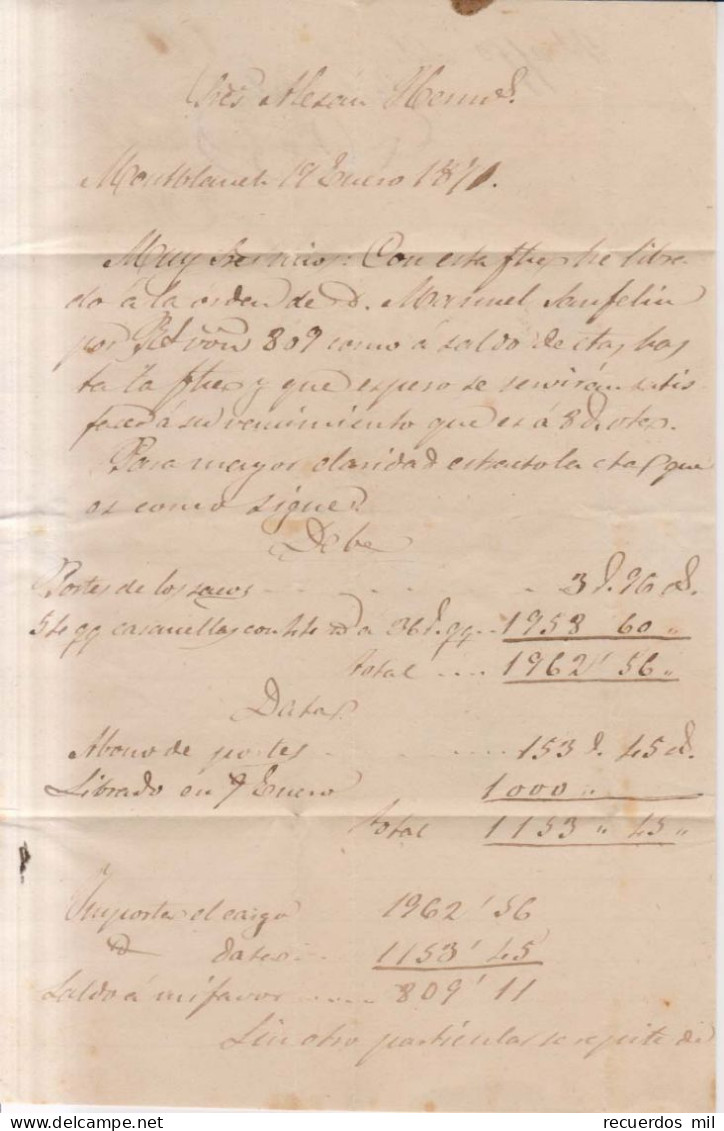 Sres Alexan Herms.
Montblanch 19 Enero 1871.
Muy Sres mios: Con esta fha he libra
do á la órden de D. Manuel Sanfeliu
por Rs von 809 como á saldo de cta has
ta la fha y que espero se servirán satis
facer á su vencimiento que es á 8 d.
Para mayor claridad estracto la cta que
es como sigue.
Debe
Portes de los sacos 3 96
54 qq con á 36 qq 1958 60 "
total 1962' 56 "
Data
Abono de portes 153 45
Librado en 7 Enero 1000 "
total 1153 " 45 "
Importa el cargo 1962' 56
data 1153' 45
Saldo á mi favor 809' 11
Sin otro particular se repite de
recuerdos mil